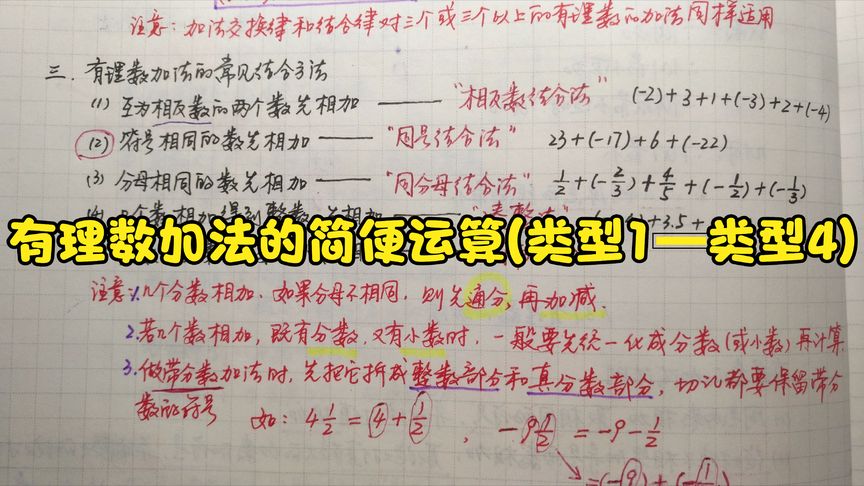 注意：加法交换律和结合律对三个或三个以上的有理数的加法同样适用
三、有理数加法的常见结合方法
(1) 互为相反数的两个数先相加 —— “相反数结合法” (-2)+3+1+(-3)+2+(-4)
(2) 符号相同的数先相加 —— “同号结合法” 23+(-17)+6+(-22)
(3) 分母相同的数先相加 —— “同分母结合法” 1/2+(-2/3)+4/5+(-1/2)+(-1/3)
+3.5+
有理数加法的简便运算(类型1—类型4)
注意：1.几个分数相加，如果分母不相同，则先通分，再加减.
2.若几个数相加，既有分数，又有小数时，一般要先统一化成分数(或小数)再计算
3.做带分数加法时，先把它拆成整数部分和真分数部分，切记都要保留带分
数的符号 如：4 1/2=4+1/2，-9 1/2=-9-1/2
=(-9)+(-1